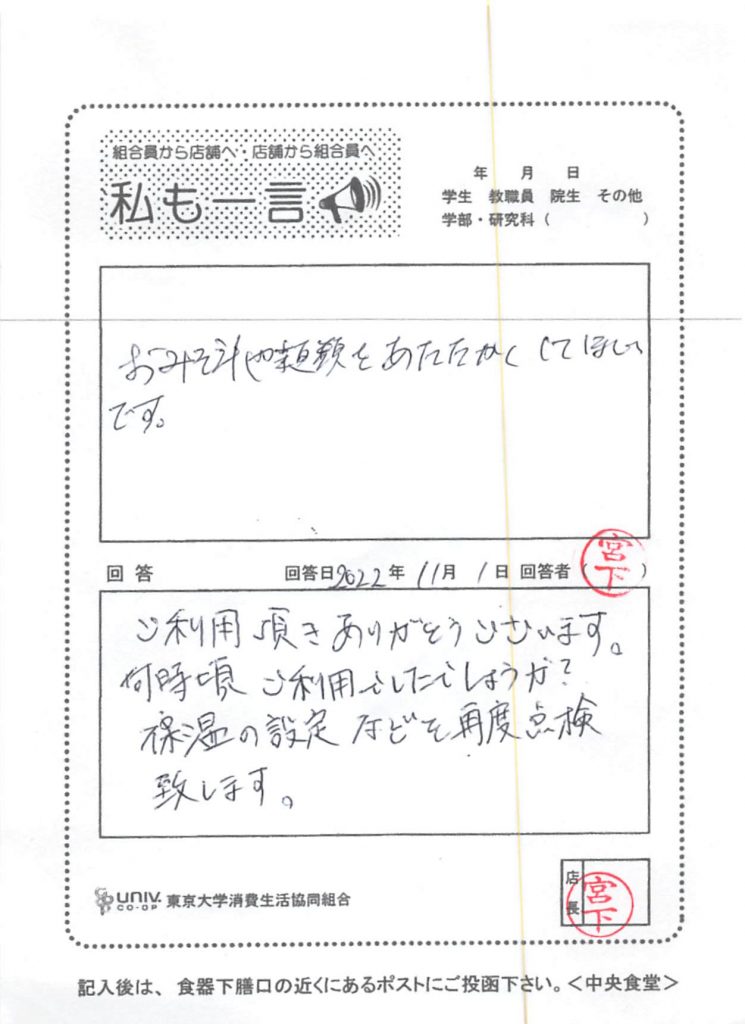 組合員から店舗へ・店舗から組合員へ
私も一言
年 月 日
学生 教職員 院生 その他
学部・研究科( )
おみそ汁や麺類をあたたかくしてほしい
です。
回答 回答日2022年 11月 1日 回答者(宮下)
ご利用頂きありがとうございます。
何時頃ご利用でしたでしょうか?
保温の設定などを再度点検
致します。
店長 宮下
UNIV. CO-OP 東京大学消費生活協同組合
記入後は、食器下膳口の近くにあるポストにご投函下さい。<中央食堂>